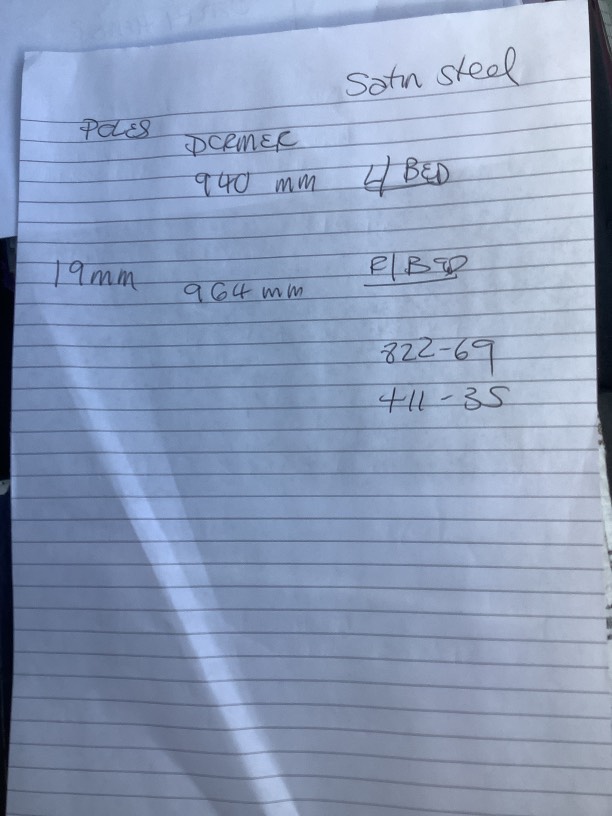 Satin steel
POLES
DORMER
940 mm 4 BED
19mm
964mm R/BED
822-69
411-35